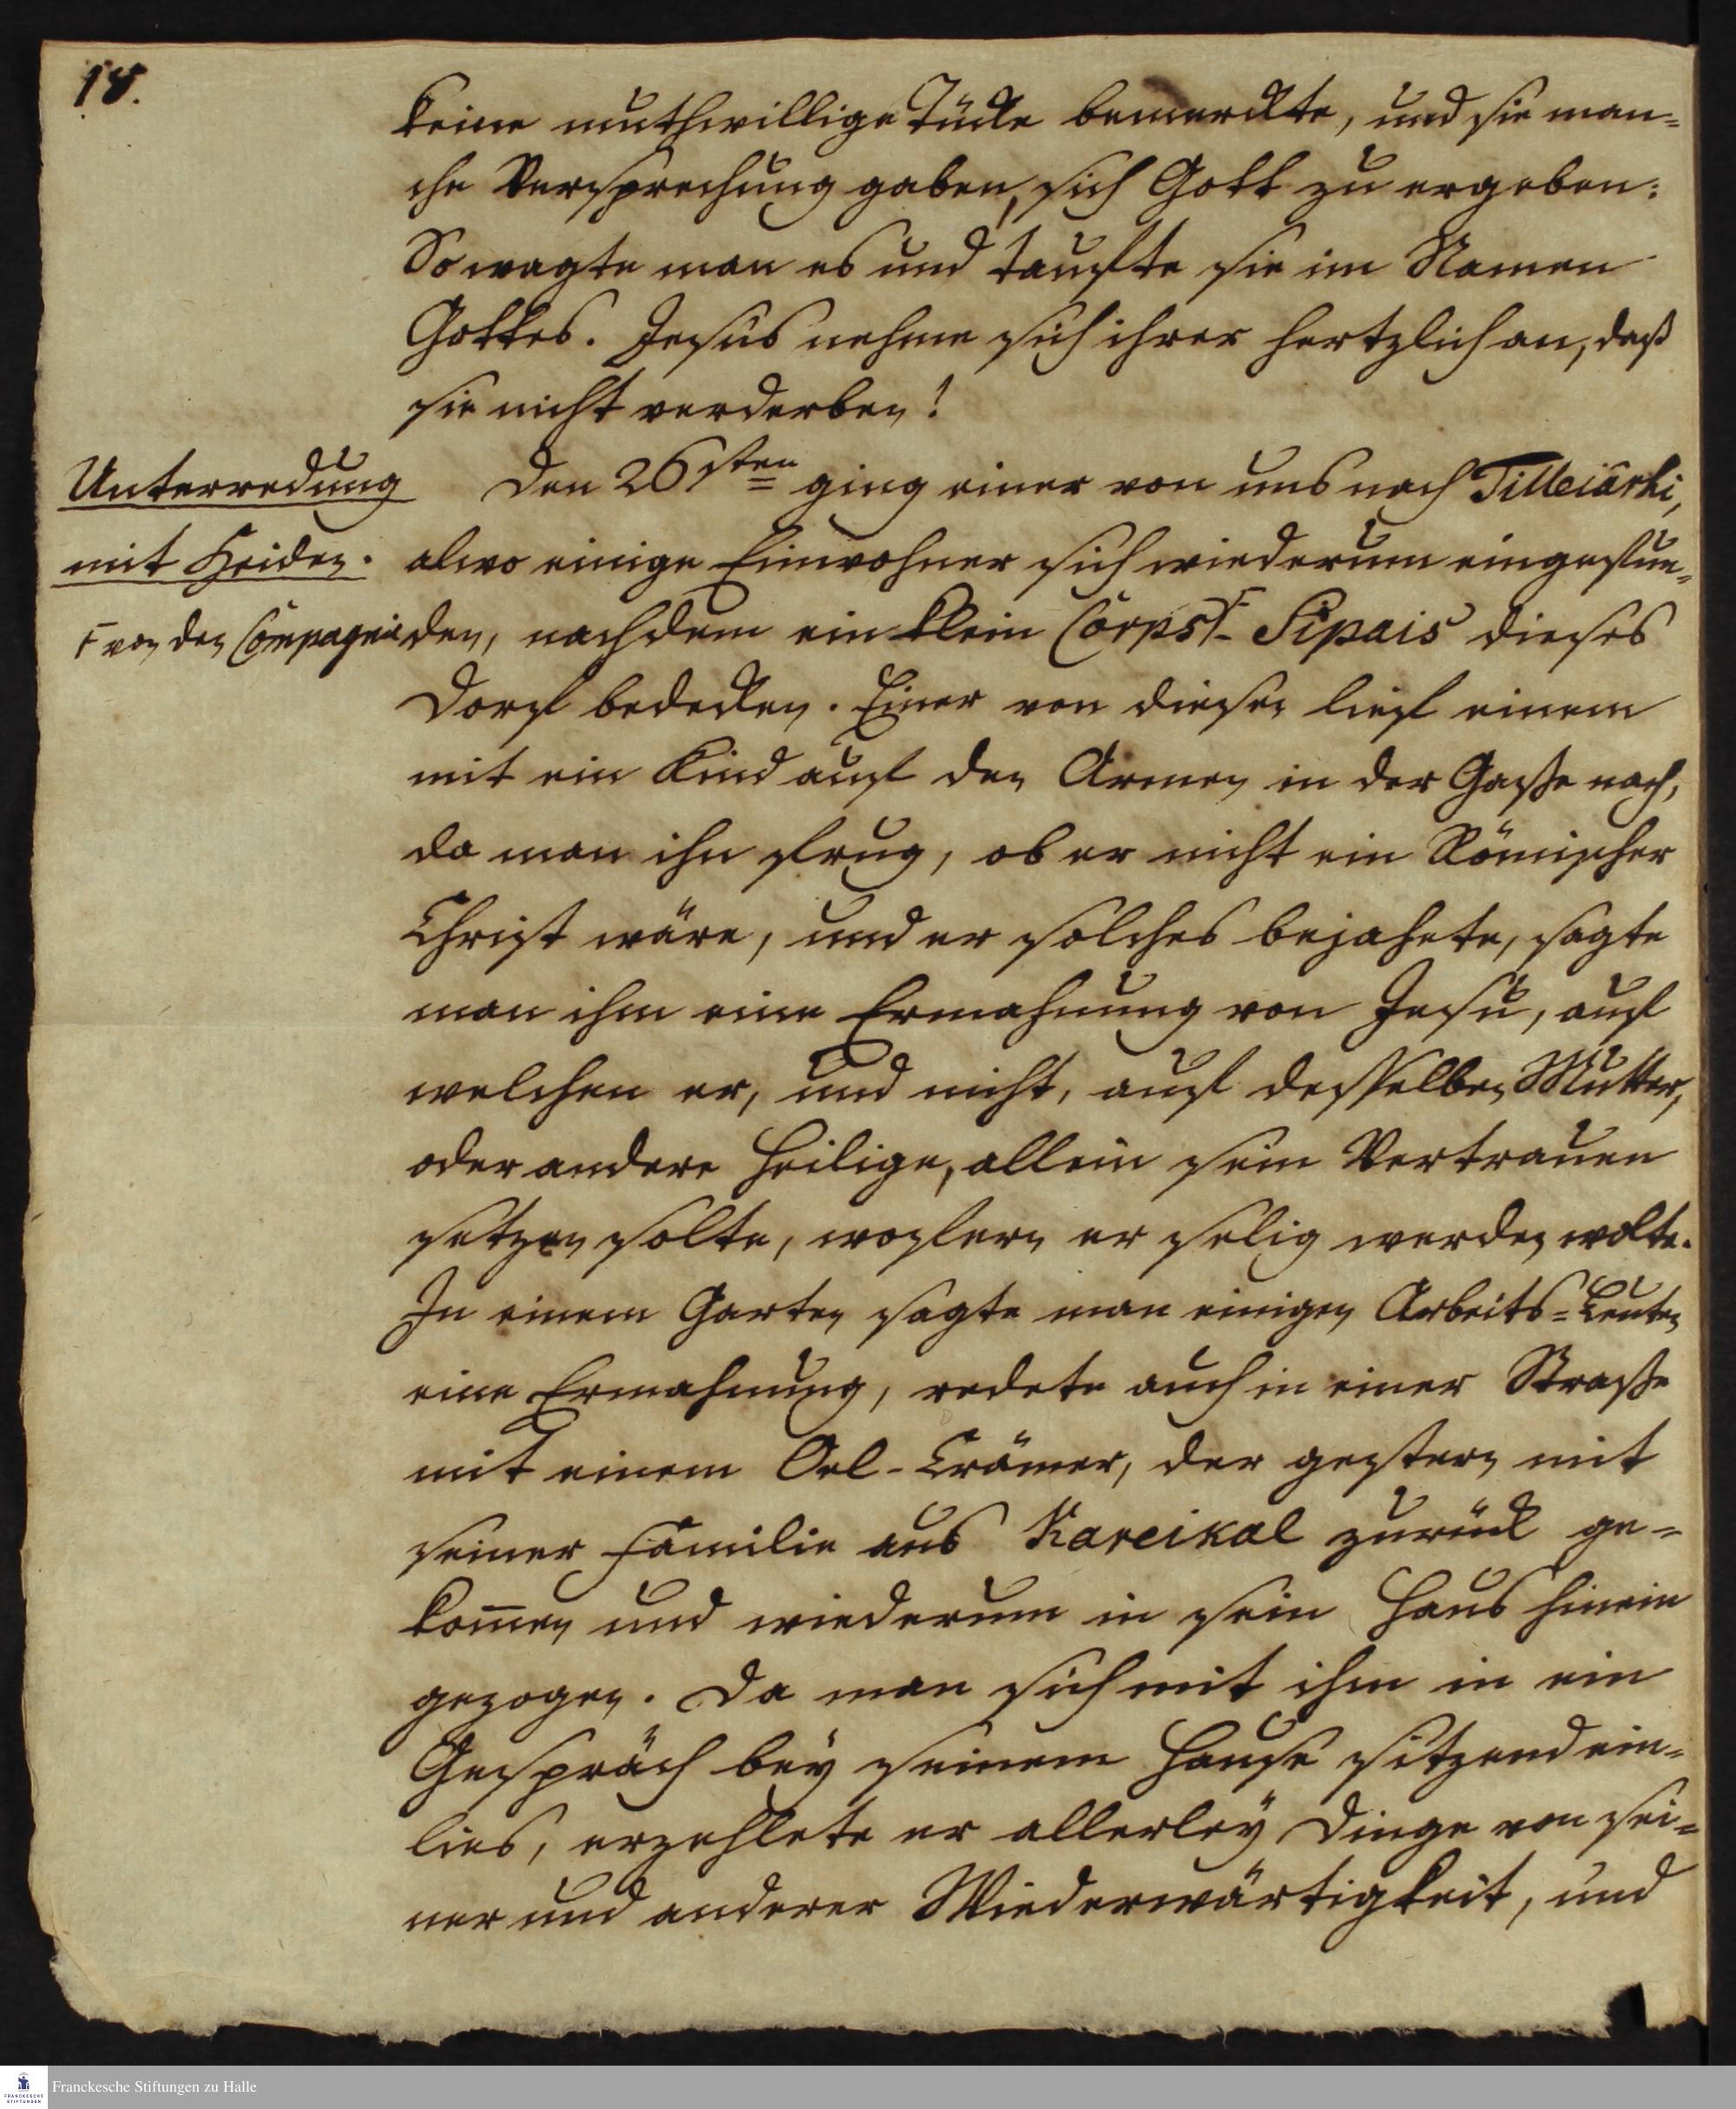 18.
keine muthwillige Tücke bemerckte, und sie man=
che Versprechung gaben, sich Gott zu ergeben:
So wagte man es und taufte sie im Namen
Gottes. Jesus nehme sich ihrer hertzlich an, daß
sie nicht verderben!
Unterredung
mit Heiden.
Den 26sten ging einer von uns nach Tilleiarhi,
alwo einige Einwohner sich wiederum eingefun=
Ŧ von den Compagnie
den, nachdem ein klein Corps Ŧ Sipais dieses
Dorf bedecken. Einer von diesen lief einem
mit ein Kind auf den Armen in der Gasse nach,
da man ihn frug, ob er nicht ein Römischer
Christ wäre, und er solches bejahete, sagte
man ihm eine Ermahnung von Jesu, auf
welchen er, und nicht, auf desselben Mutter,
oder andere Heilige, allein sein Vertrauen
setzen solte, wofern er selig werden wolte.
In einem Garten sagte man einigen Arbeits=Leuten
eine Ermahnung, redete auch in einer Strasse
mit einem Oel-Crämer, der gestern mit
seiner Familie aus Kareikal zurück ge=
kom̄en und wiederum in sein Haus hinein
gezogen. Da man sich mit ihm in ein
Gespräch bey seinem Hause sitzend ein=
lies, erzehlete er allerley Dinge von sei=
ner und anderer Wiederwärtigkeit, und
Franckesche Stiftungen zu Halle
FRANCKESCHE
STIFTUNGEN